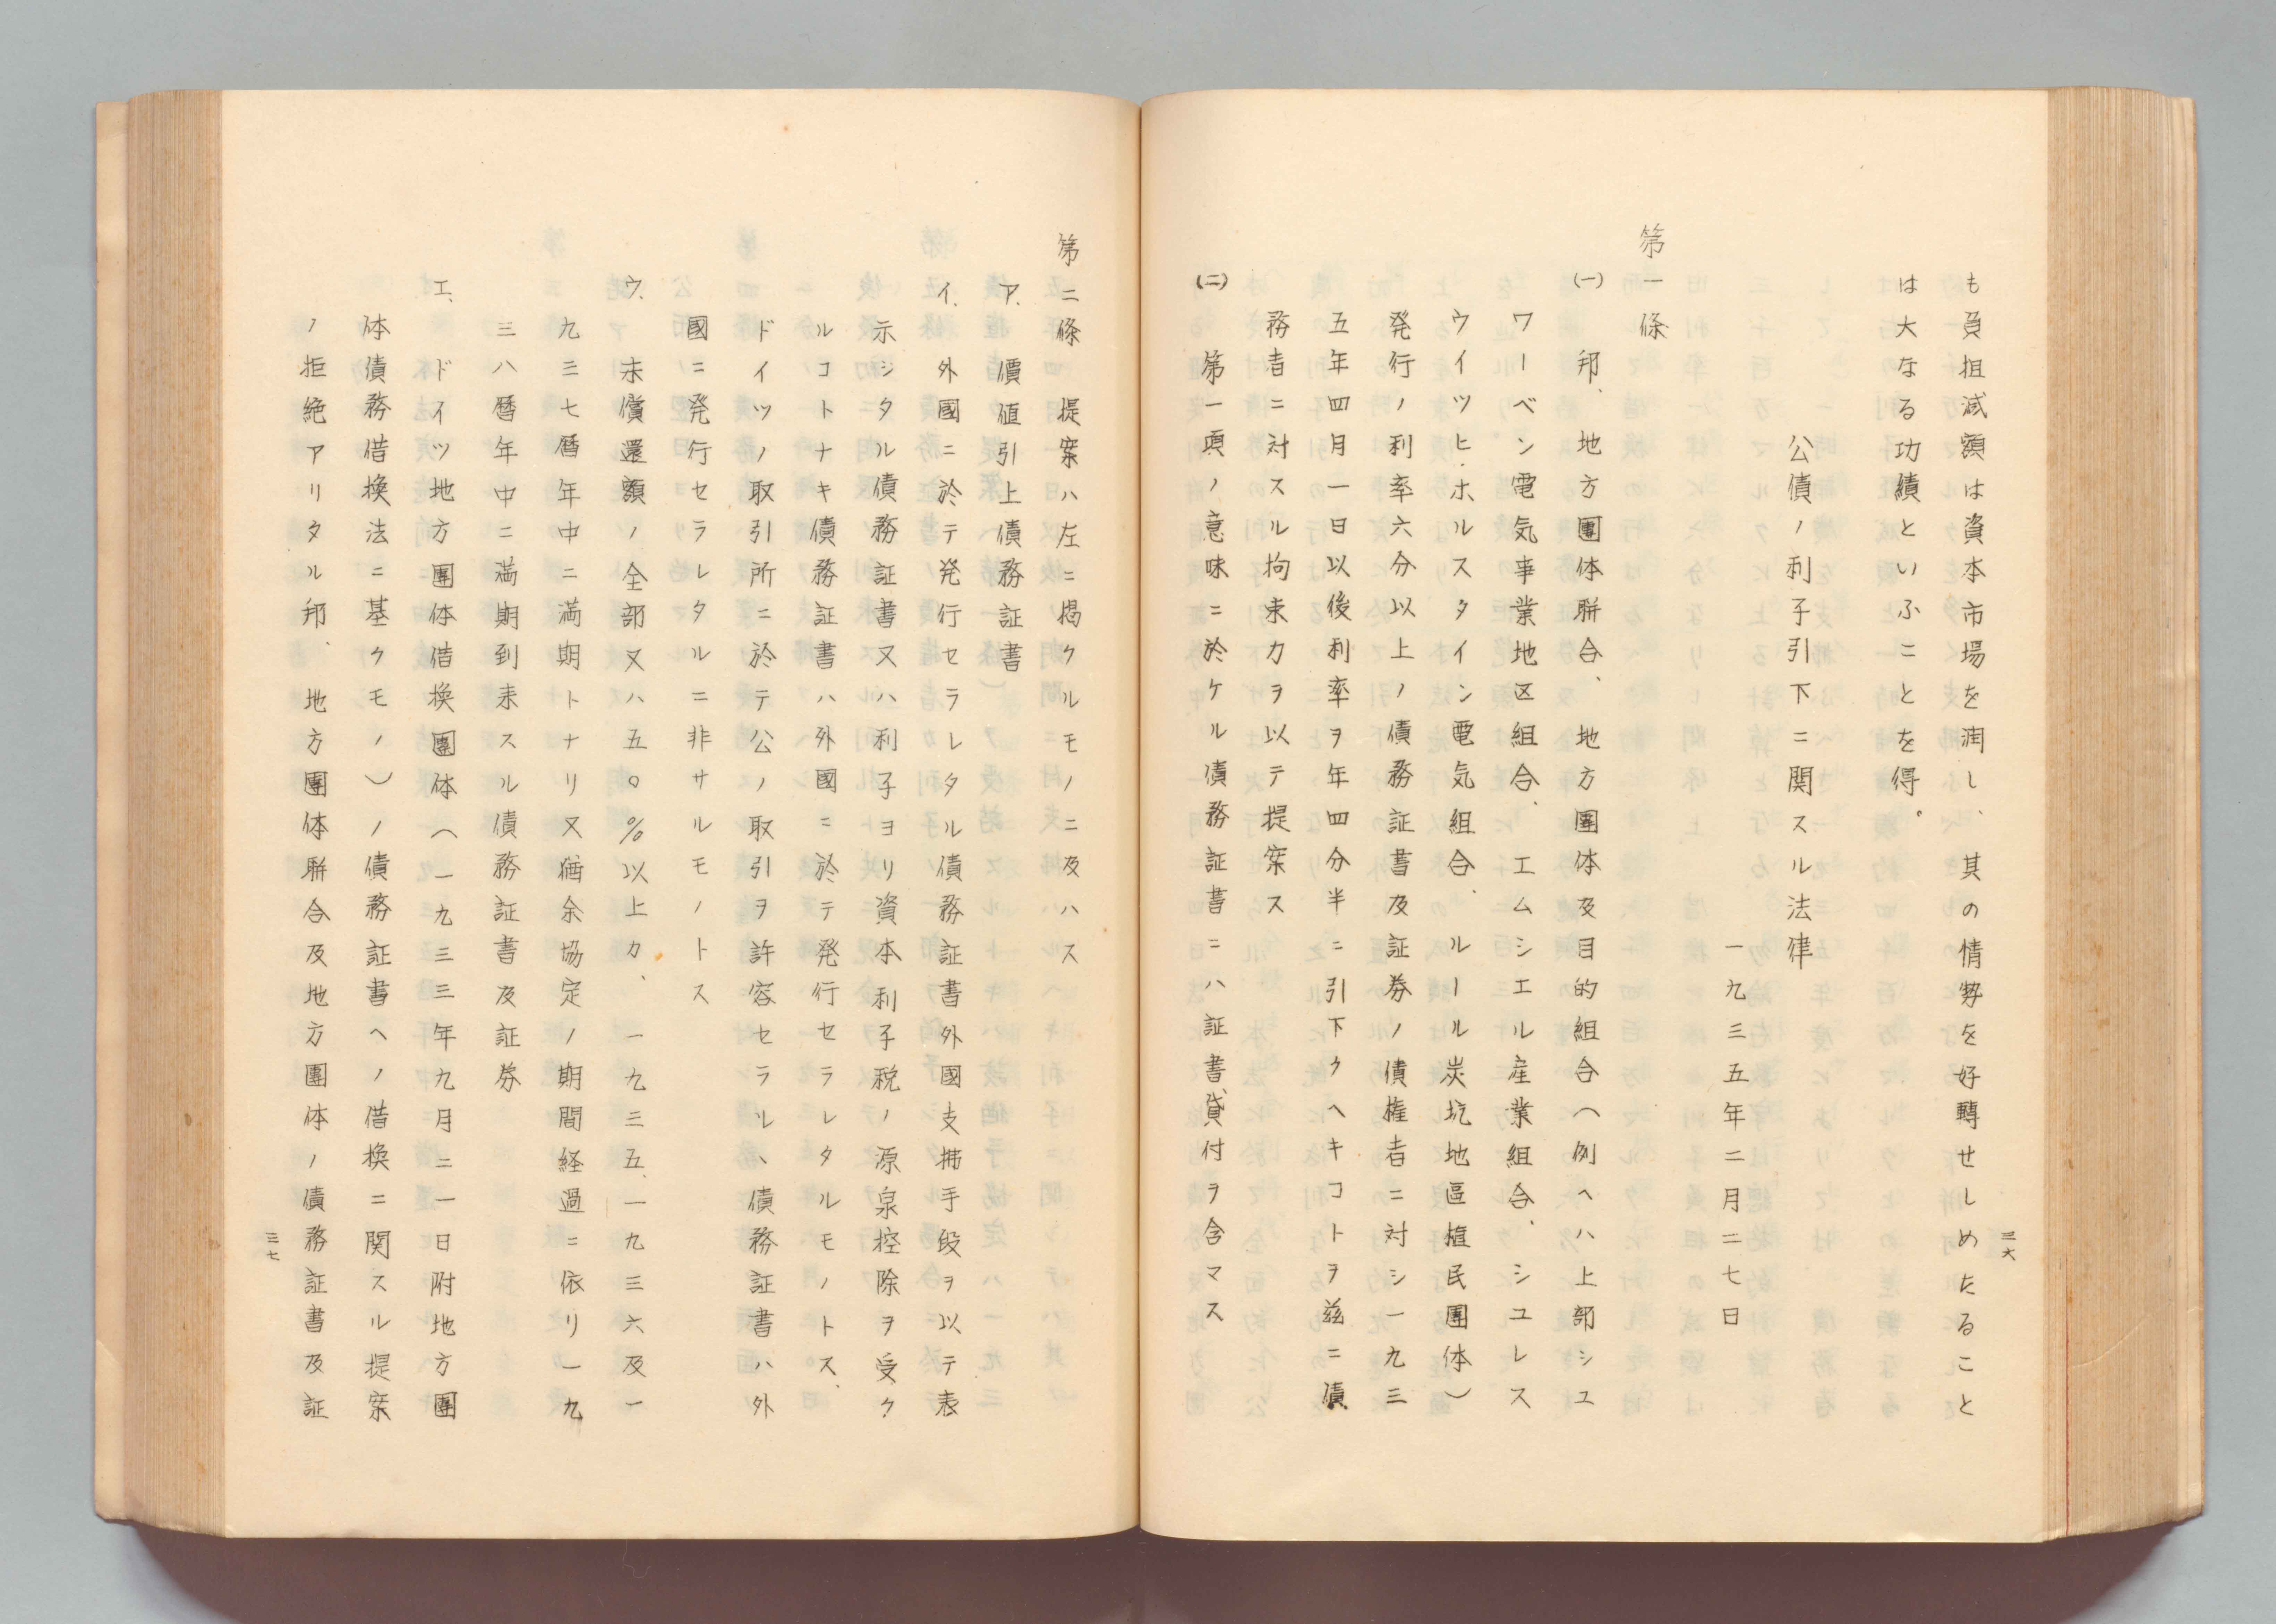 三六
も負担減額は資本市場を潤し、其の情勢を好轉せしめたること
は大なる功績といふことを得。
公債ノ利子引下ニ関スル法律
一九三五年二月二七日
第一條
(一) 邦、地方團体聯合、地方團体及目的組合（例ヘハ上部シユ
ワーベン電気事業地区組合、エムシエル産業組合、シユレス
ウイツヒ・ホルスタイン電気組合、ルール炭坑地區植民團体）
発行ノ利率六分以上ノ債務証書及証券ノ債権者ニ対シ一九三
五年四月一日以後利率ヲ年四分半ニ引下クヘキコトヲ茲ニ債
務者ニ対スル拘束力ヲ以テ提案ス
(二) 第一項ノ意味ニ於ケル債務証書ニハ証書貸付ヲ含マス
第二條 提案ハ左ニ掲クルモノニ及ハス
ア、價値引上債務証書
イ、外國ニ於テ発行セラレタル債務証書外國支拂手段ヲ以テ表
示シタル債務証書又ハ利子ヨリ資本利子税ノ源泉控除ヲ受ク
ルコトナキ債務証書ハ外國ニ於テ発行セラレタルモノトス、
ドイツノ取引所ニ於テ公ノ取引ヲ許容セラルヽ債務証書ハ外
國ニ発行セラレタルニ非サルモノトス
ウ、未償還額ノ全部又ハ五〇％以上カ、一九三五、一九三六及一
九三七暦年中ニ満期トナリ又猶余協定ノ期間経過ニ依リ一九
三八暦年中ニ満期到来スル債務証書及証券
エ、ドイツ地方團体借換團体（一九三三年九月二一日附地方團
体債務借換法ニ基クモノ）ノ債務証書ヘノ借換ニ関スル提案
ノ拒絶アリタル邦、地方團体聯合及地方團体ノ債務証書及証
三七